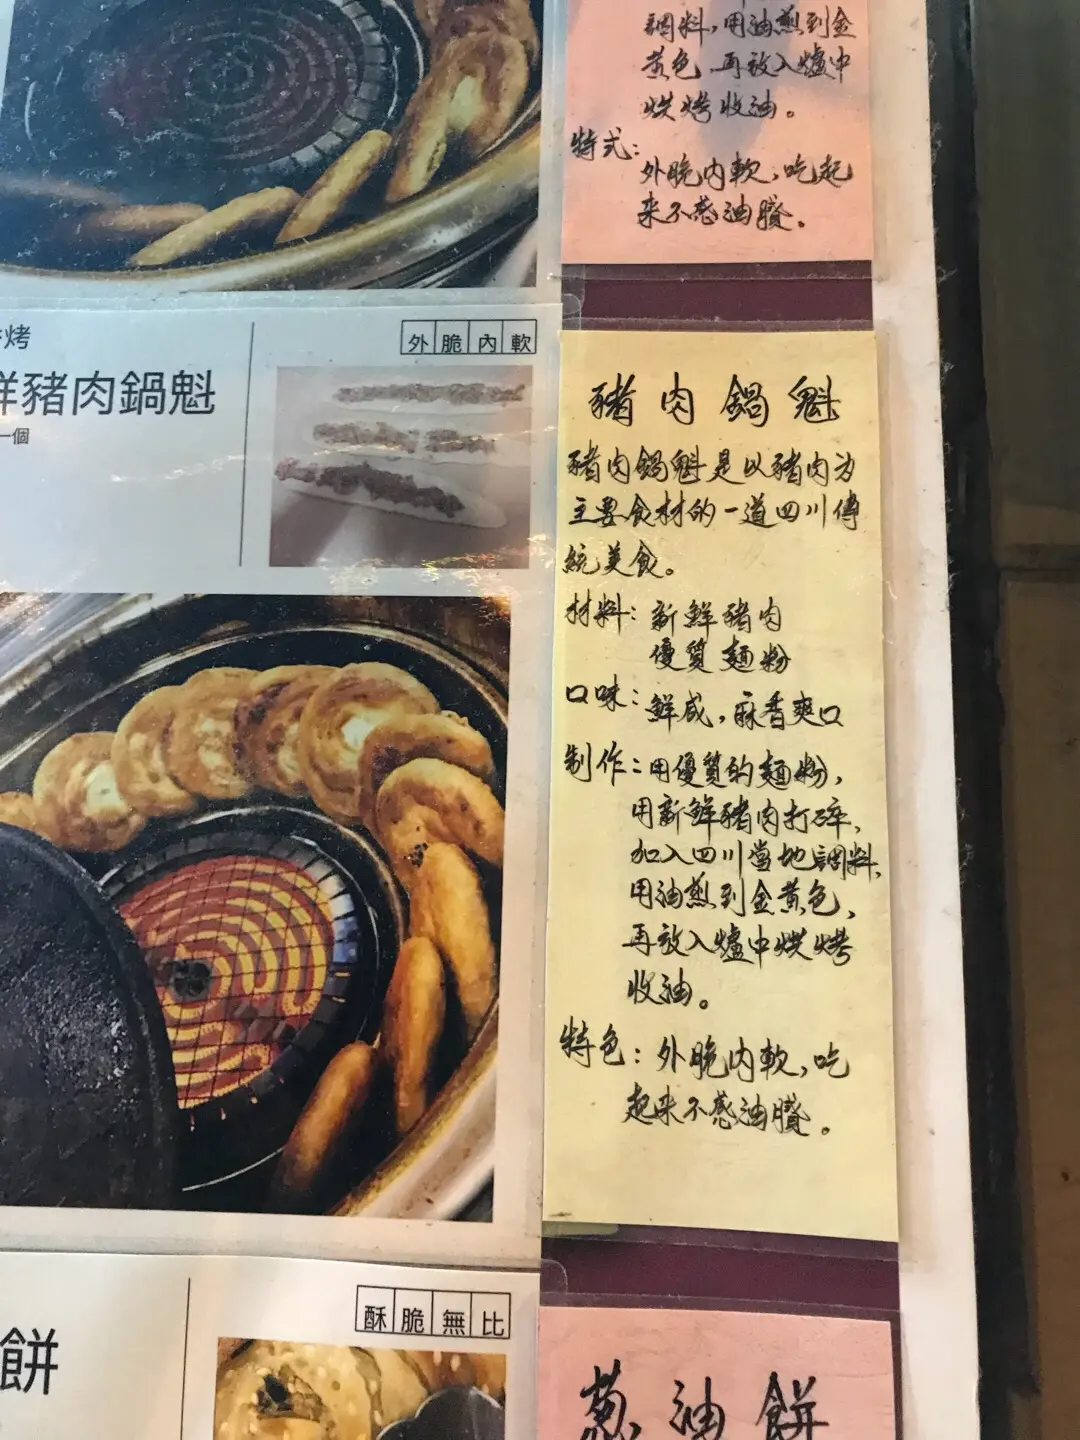 調料，用油煎到金
黃色，再放入爐中
烘烤收油。
特式：
外脆內軟，吃起
来不感油膩。
烤
外脆內軟
鮮豬肉鍋魁
一個
豬肉鍋魁
豬肉鍋魁是以豬肉为
主要食材的一道四川傳
統美食。
材料：新鮮豬肉
優質麵粉
口味：鮮咸，酥香爽口
制作：用優質的麵粉，
用新鮮豬肉打碎，
加入四川當地調料，
用油煎到金黃色，
再放入爐中烘烤
收油。
特色：外脆內軟，吃
起来不感油膩。
酥脆無比
餅
葱油餅